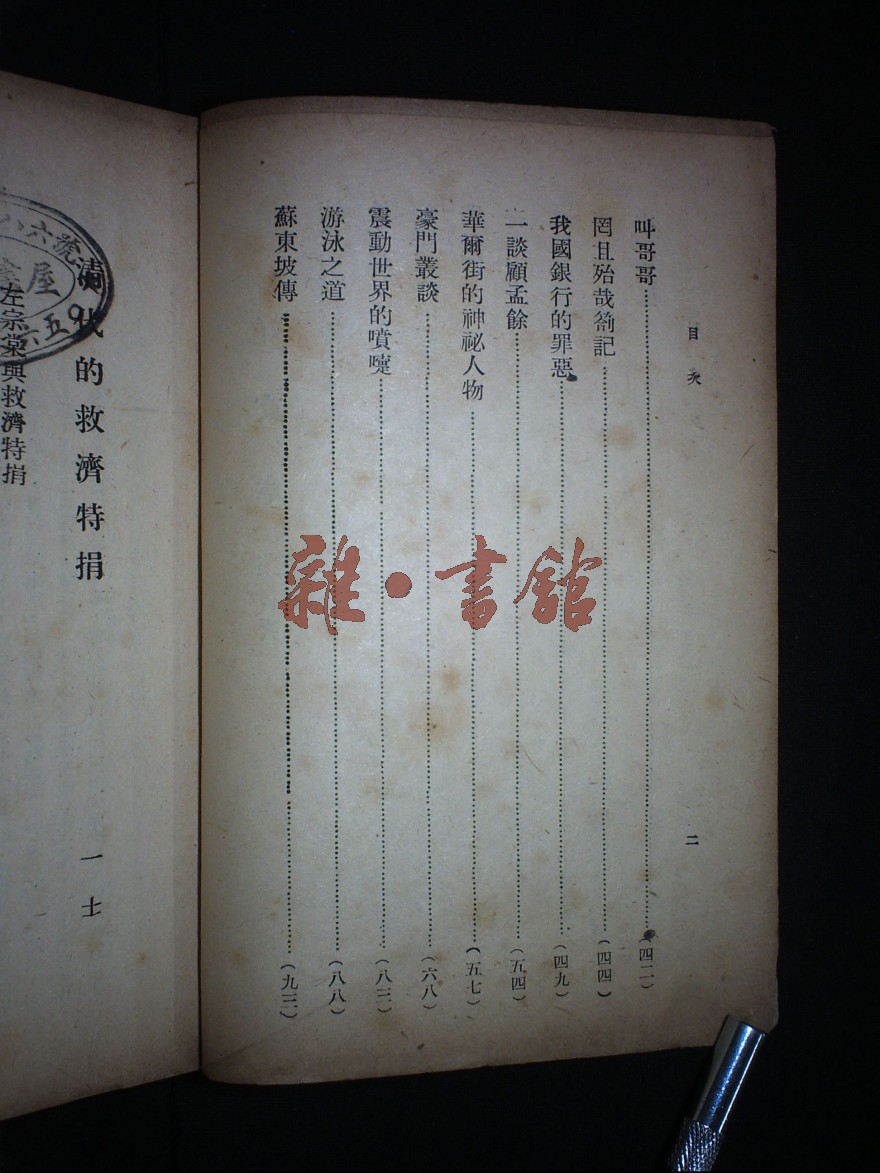 目次
二
叫哥哥（四二）
罔且殆哉劄記（四四）
我國銀行的罪惡（四九）
一談顧孟餘（五四）
華爾街的神祕人物（五七）
豪門叢談（六八）
震動世界的噴嚏（八三）
游泳之道（八八）
蘇東坡傳（九三）
雜·書館
清代的救濟特捐
一士
左宗棠與救濟特捐
六號
屋
六五9